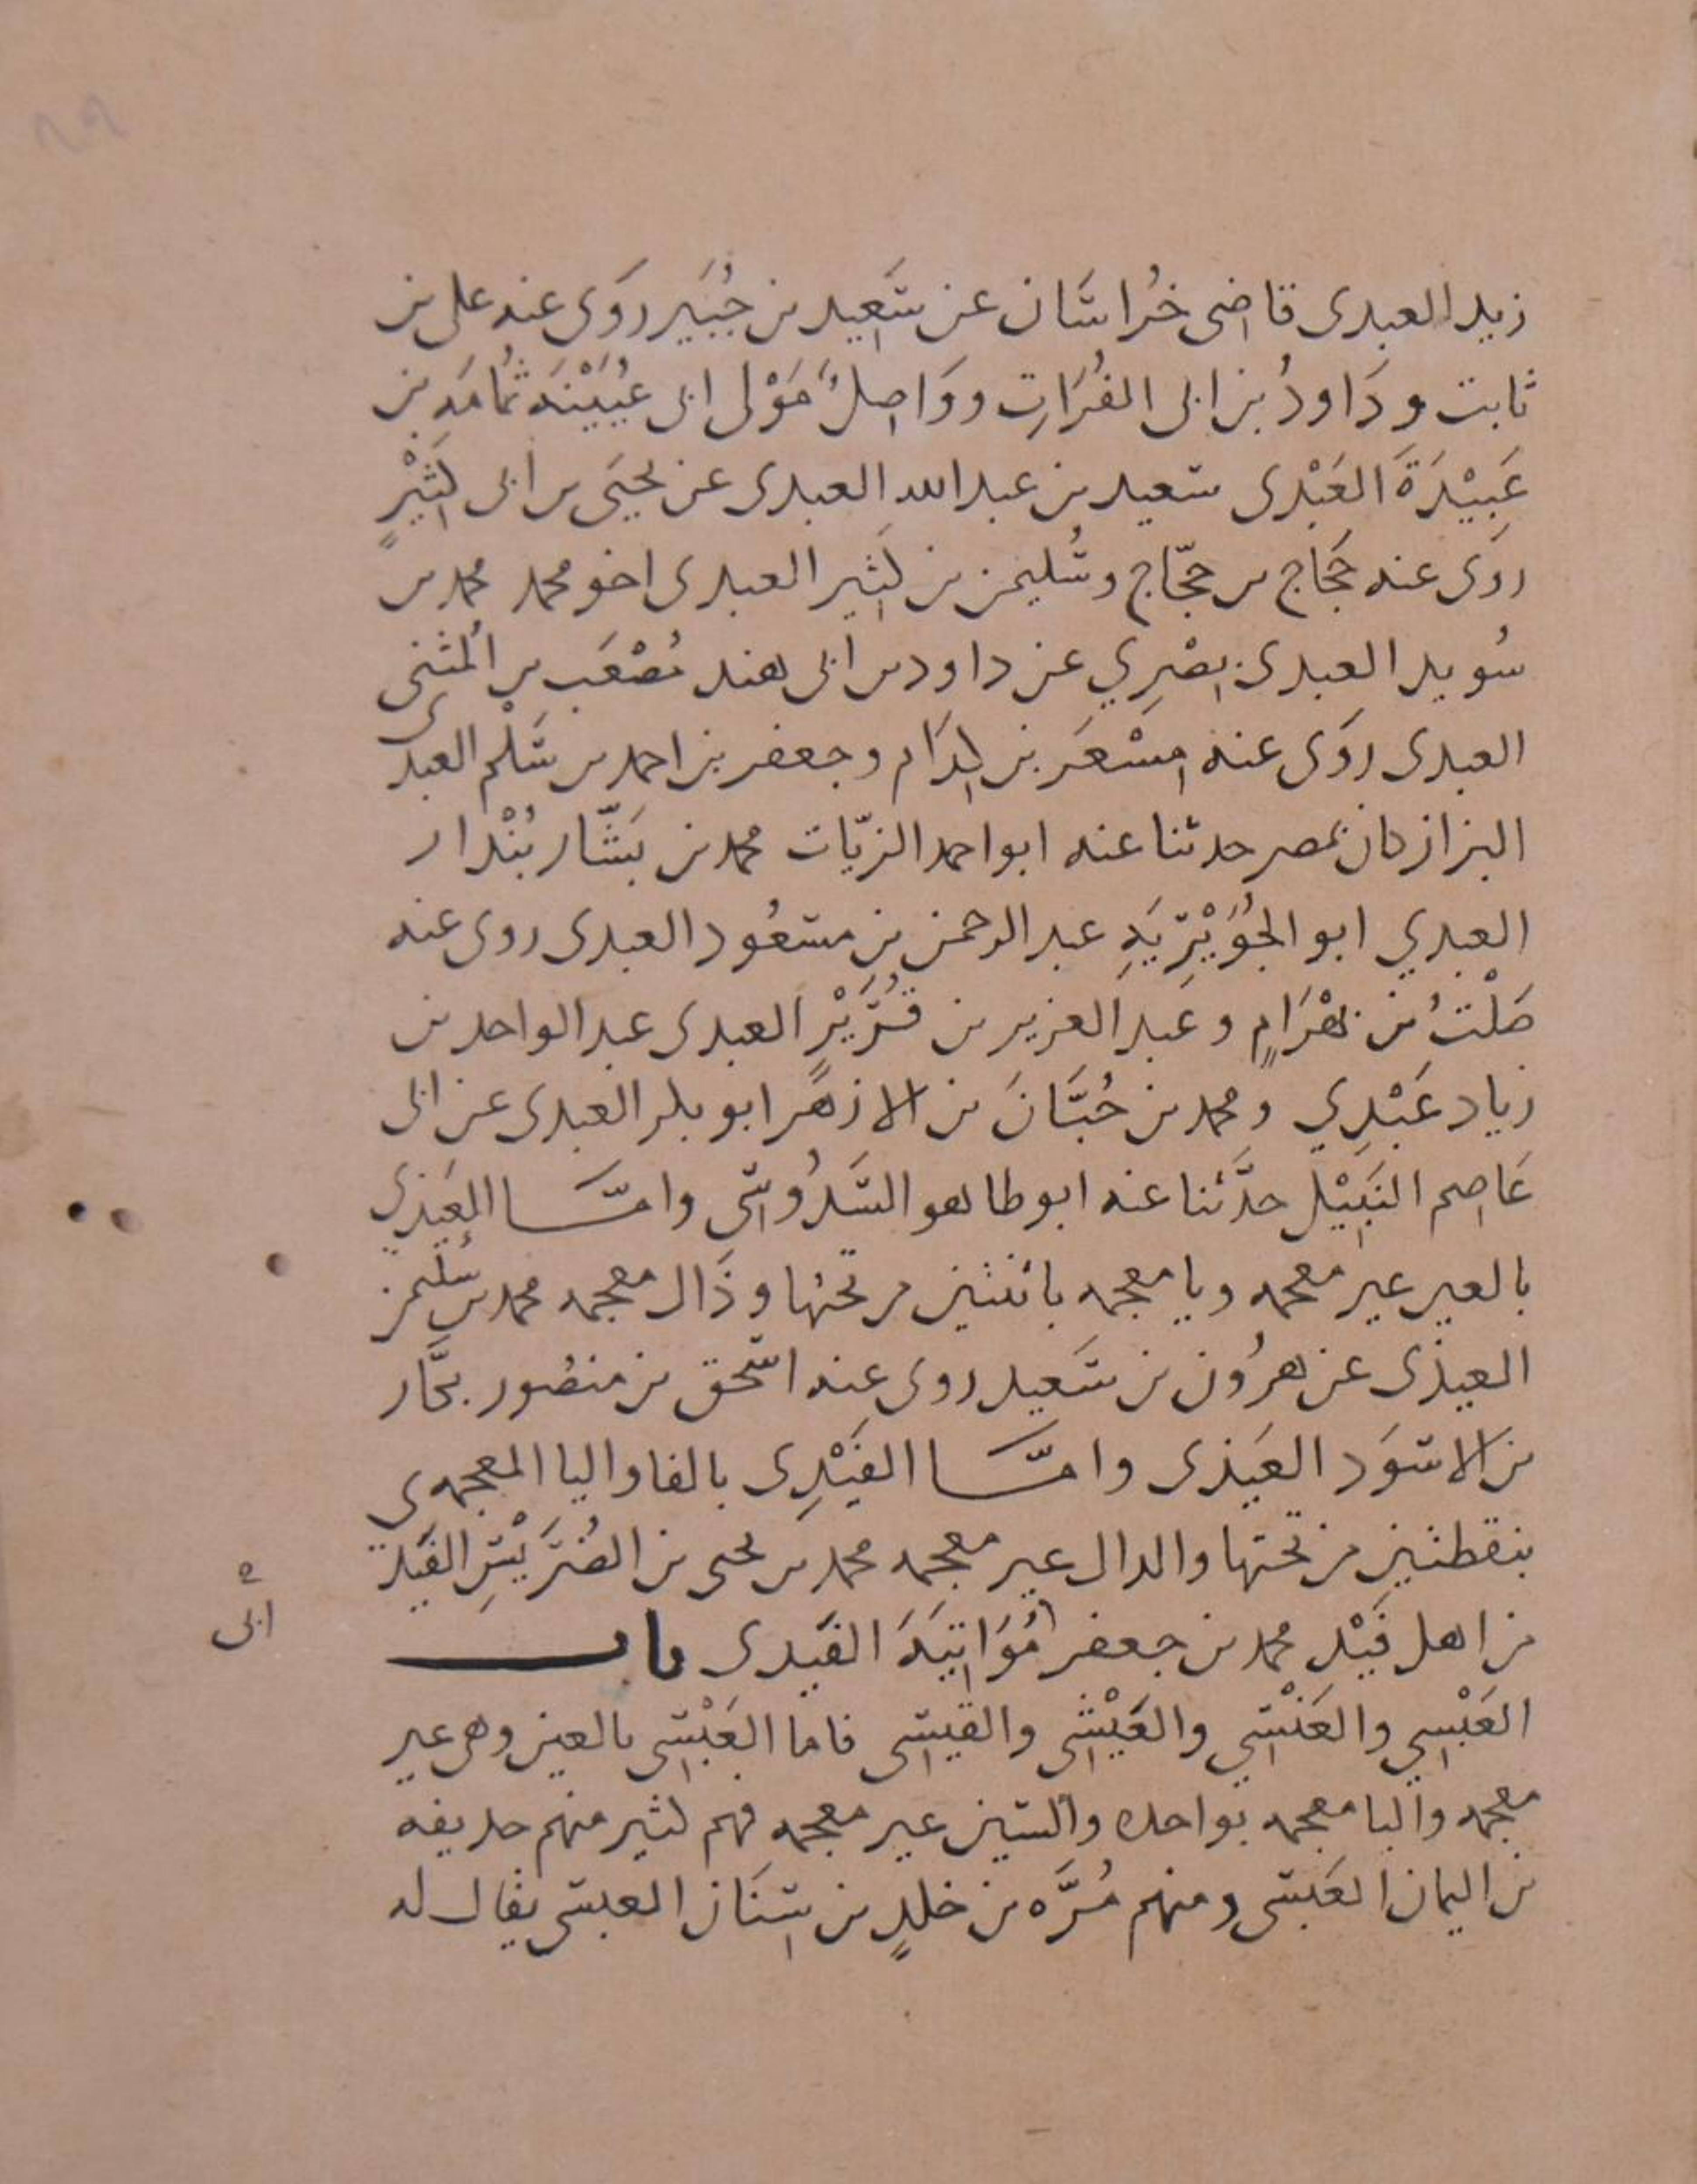 زيد العبدى قاضى خُراسَان عن سَعِيد بن جُبَير روَى عنه على بن
ثابت و دَاودُ بن ابى الفُرَاتِ ووَاصِلٌ مَوْلى ابى عُيَيْنَه ثُمامَه بن
عَبِيْدَةَ العَبْدى سعيد بن عبد الله العبدى عن يحيَى بن ابى كَثِيْرٍ
روَى عنه حَجّاج بن حجّاج وسُليمن بن كَثِير العبدى اخو محمد محمد بن
سُويد العبدى بصْرِي عن داود بن ابى هند مُصْعَب بن المُثنى
العبدى روَى عنه مِسْعَر بن كِدَام وجعفر بن احمد بن سَلْم العبدى
البزاز كان بمصر حدثنا عنه ابو احمد الزيّات محمد بن بَشّار بُنْدار
العبدي ابو الجُوَيْرِيَهِ عبد الرحمن بن مسعُود العبدى روى عنه
صَلْتُ بن بَهْرَامٍ وعَبد العزيز بن قُرَيْرٍ العبدى عبد الواحد بن
زياد عَبْدِي ومحمد بن حُبَّانَ بن الازهَر ابو بكر العبدى عن ابى
عَاصِم النَبِيْل حدَّثنا عنه ابو طاهر السَدُوسِى وامّــا العَيذِي
بالعين غير معجمه ويا معجمه باثنتين من تحتها وذَال معجمه محمد بن سُليمن
العيذى عن هرُون بن سَعيد روى عنه اسحق بن منصُور بحَّار
بن الاسوَد العَيذى وامّــا الفَيْدِى بالفا واليا المعجمه ى
بنقطتين من تحتها والدال غير معجمه محمد بن يحيى بن الضُرَيْسِ الفَيد
من اهل فَيْد محمد بن جعفر مُوَاتِيَهَ الفَيدى باب
العَبْسِي والعَنْسِي والعَيْشِى والقَيسِى فاما العَبْسِى بالعين وهى غير
معجمه والبا معجمه بواحده والسين غير معجمه فهم كثير منهم حذيفه
بن اليمان العَبسى ومنهم مُرَّه بن خلدٍ بن سِنَان العبسى يقال له
ابى